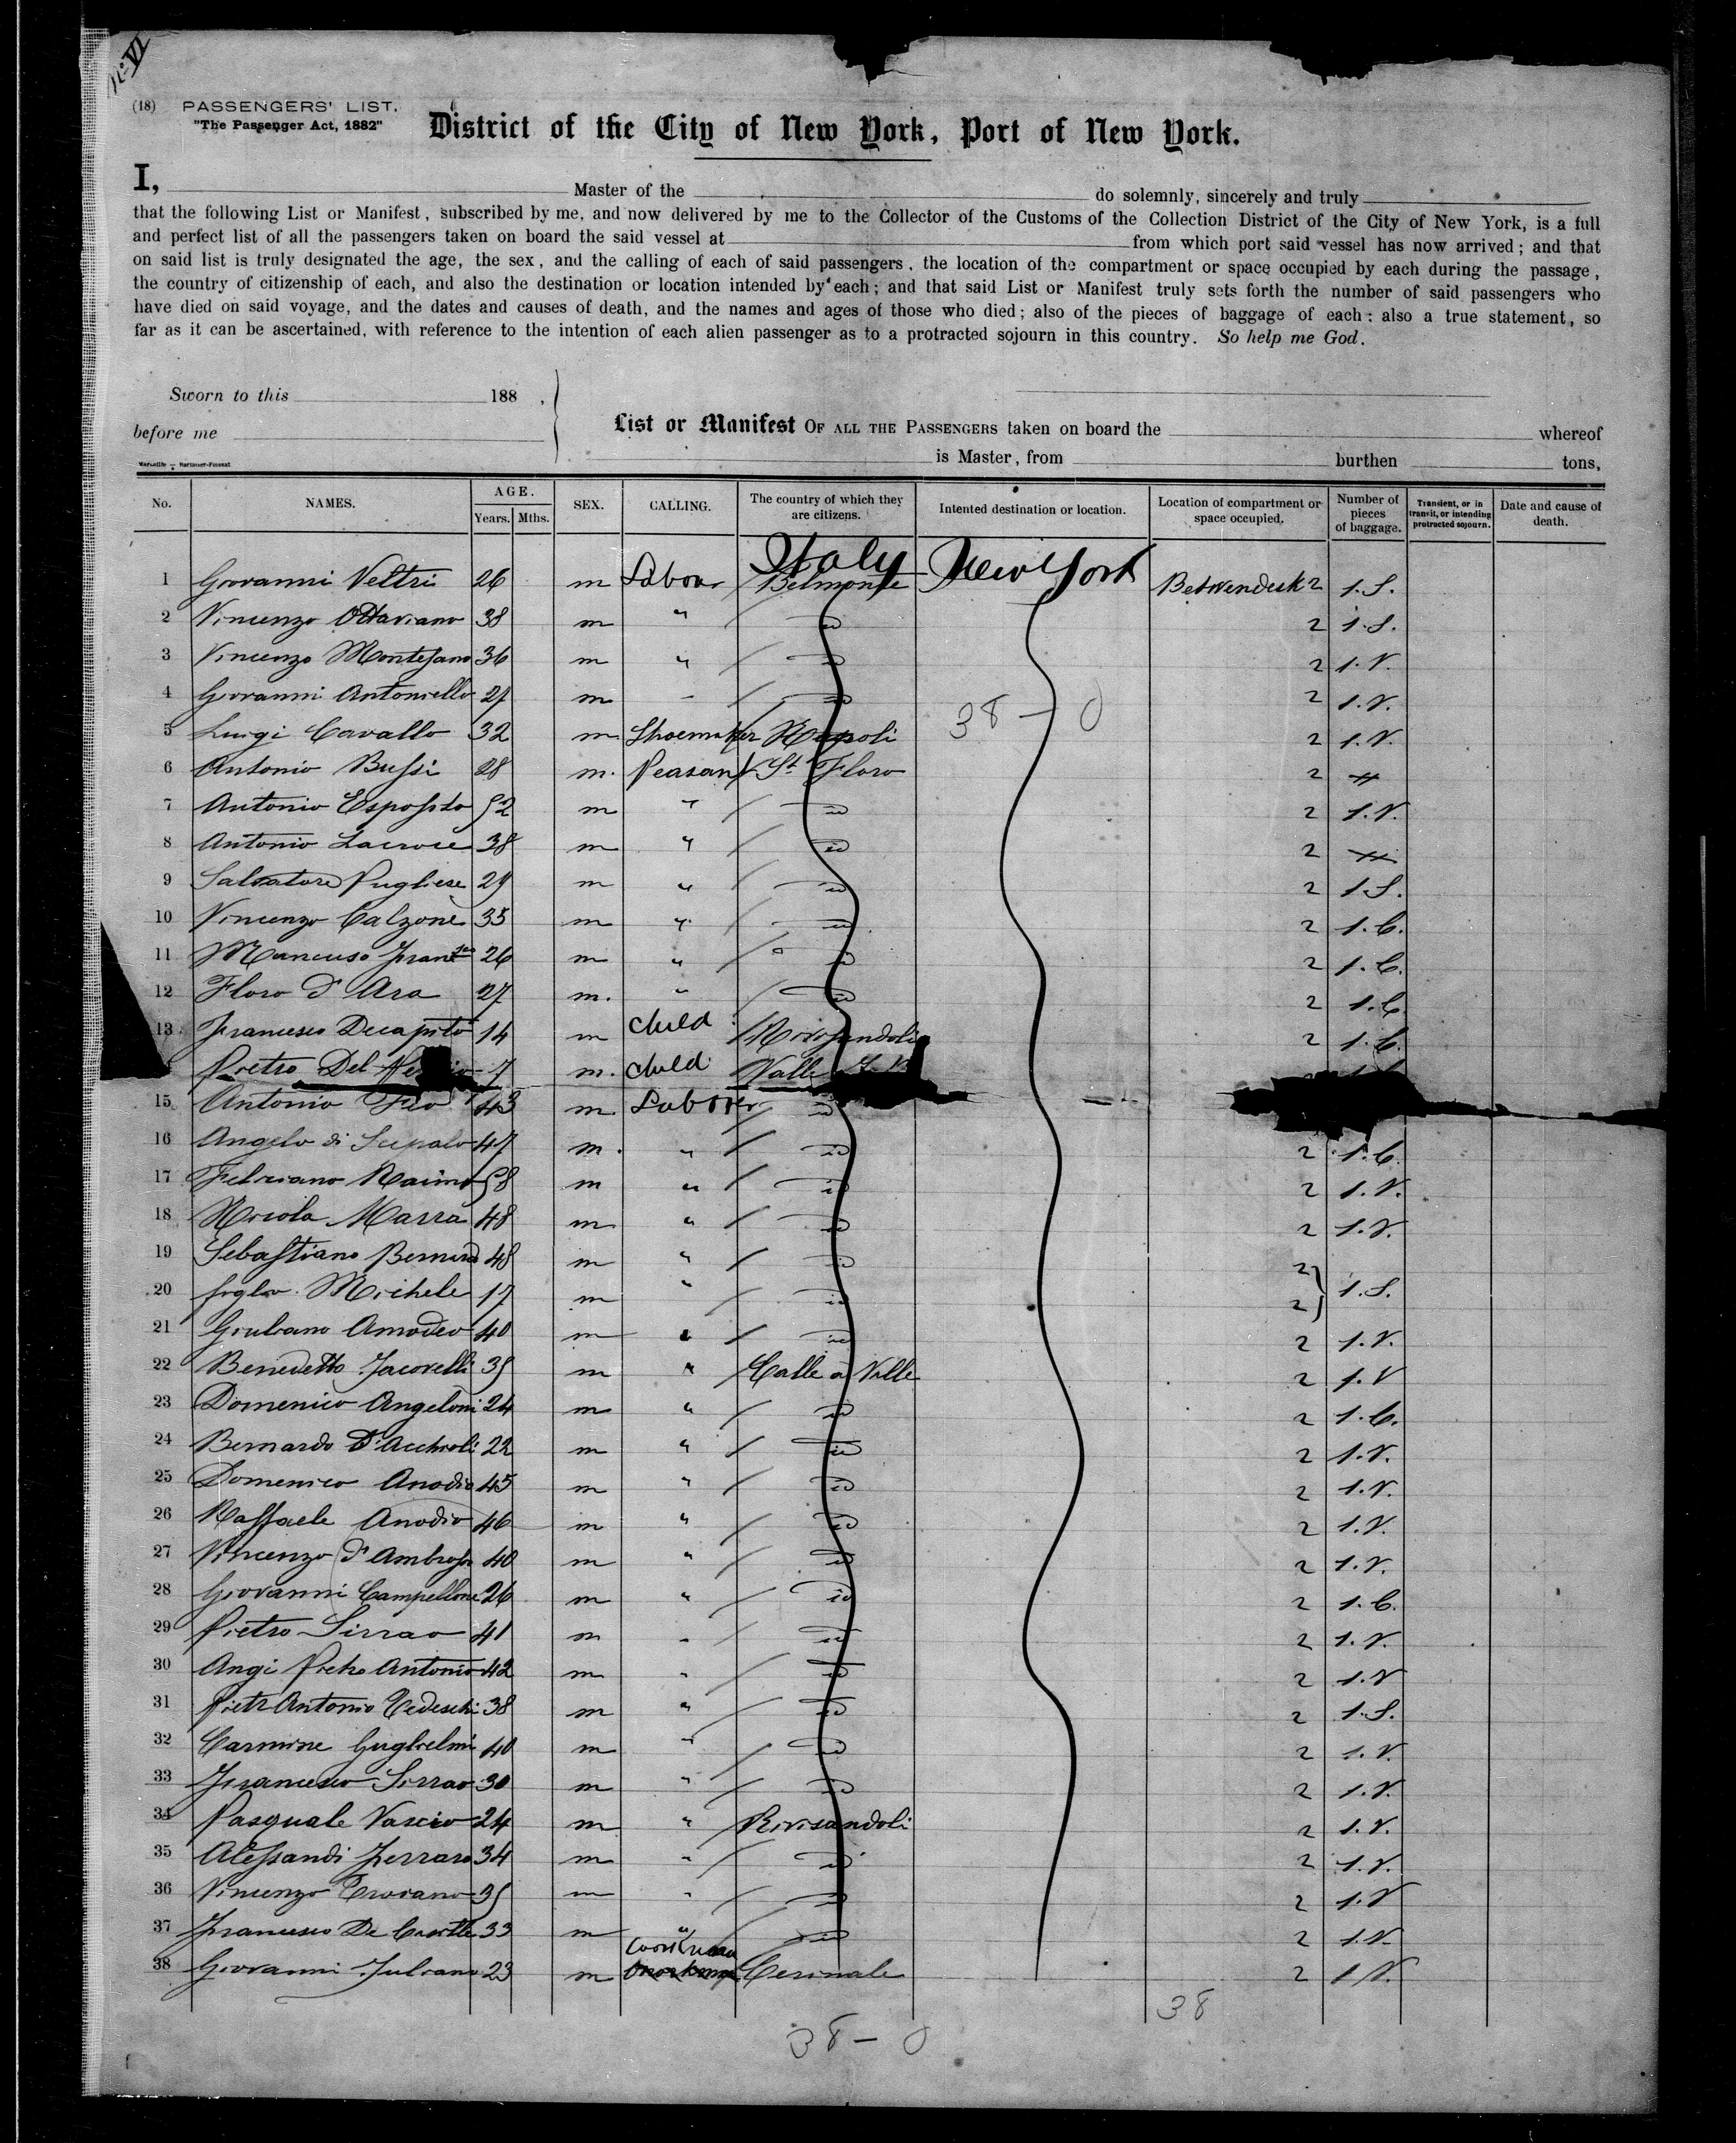 No VI
(18) PASSENGERS' LIST.
"The Passenger Act, 1882"
District of the City of New York, Port of New York.
I, Master of the do solemnly, sincerely and truly
that the following List or Manifest, subscribed by me, and now delivered by me to the Collector of the Customs of the Collection District of the City of New York, is a full
and perfect list of all the passengers taken on board the said vessel at from which port said vessel has now arrived; and that
on said list is truly designated the age, the sex, and the calling of each of said passengers, the location of the compartment or space occupied by each during the passage,
the country of citizenship of each, and also the destination or location intended by each; and that said List or Manifest truly sets forth the number of said passengers who
have died on said voyage, and the dates and causes of death, and the names and ages of those who died; also of the pieces of baggage of each: also a true statement, so
far as it can be ascertained, with reference to the intention of each alien passenger as to a protracted sojourn in this country. So help me God.
Sworn to this 188 ,
before me
List or Manifest OF ALL THE PASSENGERS taken on board the whereof
is Master, from burthen tons,
No. NAMES. AGE. Years. Mths. SEX. CALLING. The country of which they are citizens. Intented destination or location. Location of compartment or space occupied. Number of pieces of baggage. Transient, or in transit, or intending protracted sojourn. Date and cause of death.
Italy New York
1 Giovanni Veltri 26 m Labour Belmonte 2 1.S.
2 Vincenzo Ottaviano 38 m " id 2 1.S.
3 Vincenzo Montesano 36 m " id 2 1.V.
4 Giovanni Antoniello 27 m - id 2 1.V.
38 - 0
5 Luigi Cavallo 32 m. Shoemaker Napoli 2 1.V.
6 Antonio Bussi 28 m. Peasant St Floro 2
7 Antonio Esposito 52 m " id 2 1.V.
8 Antonio Lacroce 38 m " id 2
9 Salvatore Pugliese 29 m " id 2 1.S.
10 Vincenzo Calzone 35 m " id 2 1.C.
11 Mancuso Franco 26 m " id 2 1.C.
12 Floro d'Ara 27 m. " id 2 1.C.
13 Francesco Decapito 14 m child Rivisandoli 2 1.C.
Pietro Del 7 m. child Valle
15 Antonio Feo 43 m Laborer id
16 Angelo di 47 m. " id 2 1.C.
17 Feliciano Raimo 58 m " id 2 1.V.
18 Nicola Marra 48 m " id 2 1.V.
19 Sebastiano 48 m " id 2
20 figlio Michele 17 m " id 2 1.S.
21 Giuliano Amodeo 40 m " id 2 1.V.
22 Benedetto Jacovelli 35 m " Calle a Ville 2 1.V
23 Domenico Angeloni 24 m " id 2 1.C.
24 Bernardo 22 m " id 2 1.V.
25 Domenico Anodio 45 m " id 2 1.V.
26 Raffaele Anodio 46 m " id 2 1.V.
27 Vincenzo d'Ambrosio 40 m " id 2 1.V.
28 Giovanni Campellone 26 m " id 2 1.C.
29 Pietro Sirrao 41 m " id 2 1.V.
30 Angi Pietro Antonio 42 m " id 2 1.V
31 Pietr Antonio Tedeschi 38 m " id 2 1.S.
32 Carmine Guglielmi 40 m " id 2 1.V.
33 Francesco Sirrao 30 m " id 2 1.V.
34 Pasquale Vascio 24 m " Rivisandoli 2 1.V.
35 Alessandi Ferraro 34 m " id 2 1.V.
36 Vincenzo 35 m " id 2 1.V
37 Francesco De 33 m " id 2 1.V.
38 Giovanni Juliano 23 m Cerinale 2 1V.
38
38 - 0